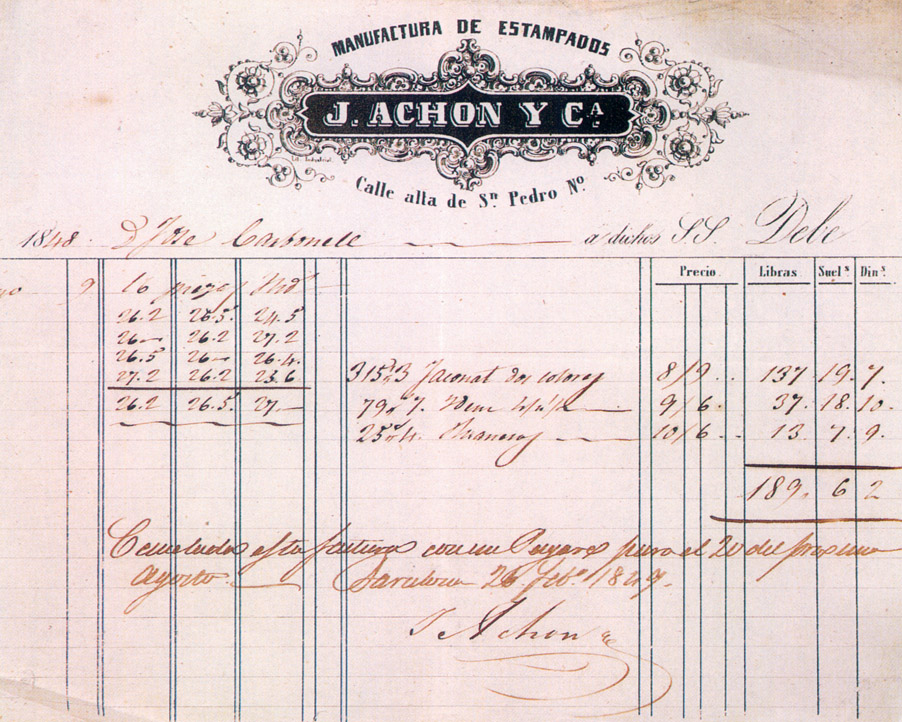 MANUFACTURA DE ESTAMPADOS
J. ACHON Y CA.
Lit. Industrial.
Calle alla de Sn Pedro No.
1848. D Jose Carbonell a dichos S.S. Debe
Precio Libras Suels. Dins.
9 10 piezas
26.2 26.5 24.5
26 26.2 27.2
26.5 26 26.4
27.2 26.2 23.6
26.2 26.5 27
315 3 Jaconat dos colores 8/9 137 19. 7.
79 7. 9/6 37. 18. 10.
25 4. 10/6 13. 7. 9.
189. 6 2
Cancelada esta factura con un Pagare para el 20 del proximo
Agosto. Barcelona 26 Febo. 1849.
J Achon